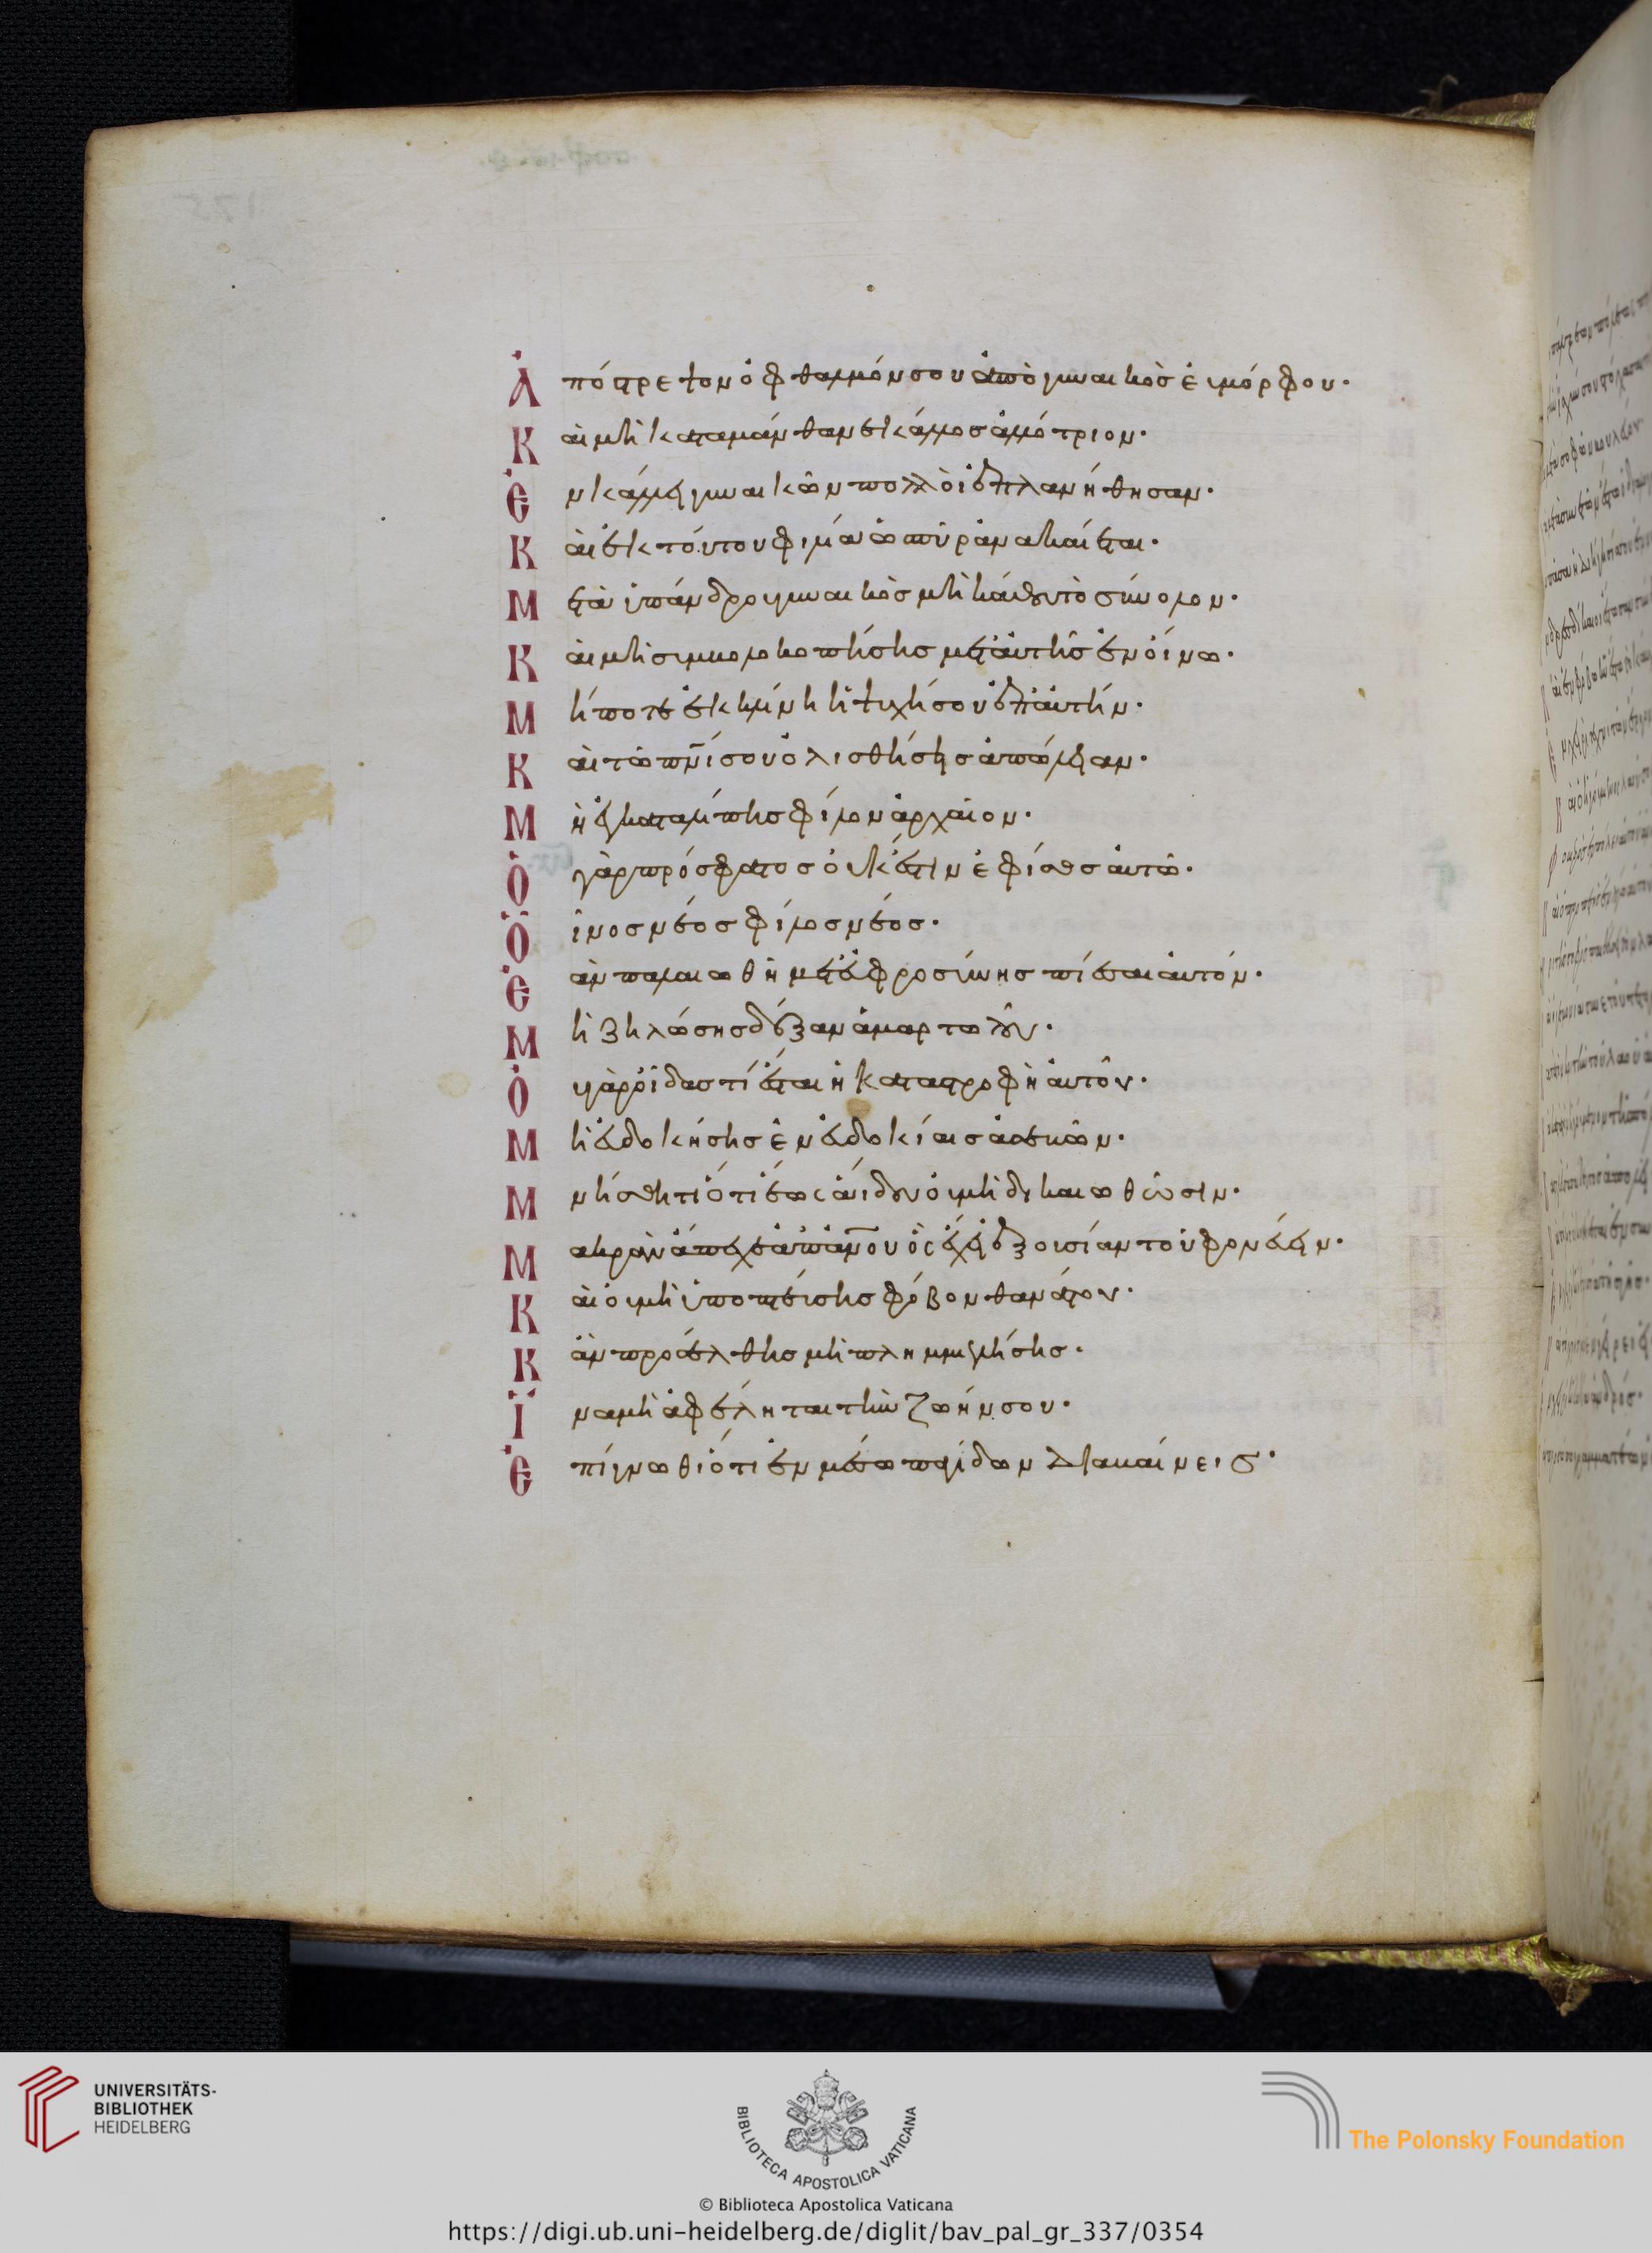 Ἀπόστρεψον ὀφθαλμόν σου ἀπὸ γυναικὸς εὐμόρφου·
Καὶ μὴ καταμάνθανε κάλλος ἀλλότριον·
Ἐν κάλλει γυναικῶν πολλοὶ ἐπλανήθησαν·
Καὶ ἐκ τούτου φιλία ὡς πῦρ ἀνακαίεται·
Μετὰ ὑπάνδρου γυναικὸς μὴ κάθου τὸ σύνολον·
Καὶ μὴ συμβολοκοπήσης μετ' αὐτῆς ἐν οἴνω·
Μήποτε ἐκκλίνη ἡ ψυχή σου ἐπ' αὐτήν·
Καὶ τῶ πν̅ί σου ὀλισθήσης εἰς ἀπώλειαν·
Μὴ ἐγκαταλίπης φίλον ἀρχαῖον·
Ὁ γὰρ πρόσφατος οὐκ ἔστιν ἔφισος αὐτῶ·
Οἶνος νέος φίλος νέος·
Ἐὰν παλαιωθῆ μετ' εὐφροσύνης πίεσαι αὐτόν·
Μὴ ζηλώσης δόξαν ἁμαρτωλοῦ·
Οὐ γὰρ οἶδας τί ἔσται ἡ καταστροφὴ αὐτοῦ·
Μὴ εὐδοκήσης ἐν εὐδοκίαις ἀσεβῶν·
Μνήσθητι ὅτι ἕως ἅδου οὐ μὴ δικαιωθῶσιν·
Μακρὰν ἄπεχε ἀπὸ ἀν̅ου ὃς ἔχει ἐξουσίαν τοῦ φονεύειν·
Καὶ οὐ μὴ ὑποπτεύσης φόβον θανάτου·
Κἂν προσέλθης μὴ πλημμελήσης·
Ἵνα μὴ ἀφέληται τὴν ζωήν σου·
Ἐπίγνωθι ὅτι ἐν μέσω παγίδων διαβαίνεις·
UNIVERSITÄTS-
BIBLIOTHEK
HEIDELBERG
BIBLIOTECA APOSTOLICA VATICANA
The Polonsky Foundation
© Biblioteca Apostolica Vaticana
https://digi.ub.uni-heidelberg.de/diglit/bav_pal_gr_337/0354